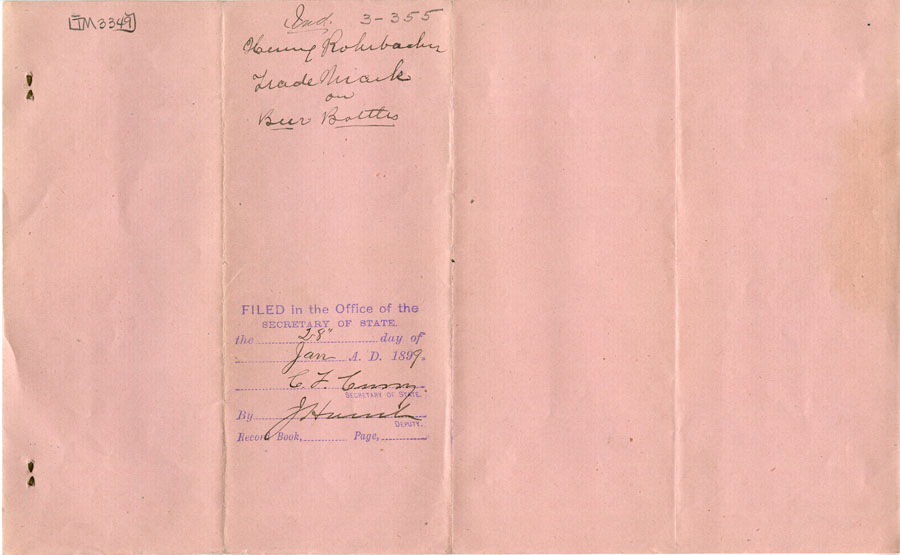 TM3349
Ind. 3-355
Henry Rohrbacher
Trade Mark
on
Beer Bottles
FILED in the Office of the
SECRETARY OF STATE.
the 28" day of
Jan A. D. 1899.
C. F. Curry
SECRETARY OF STATE.
By
DEPUTY.
Record Book, Page,